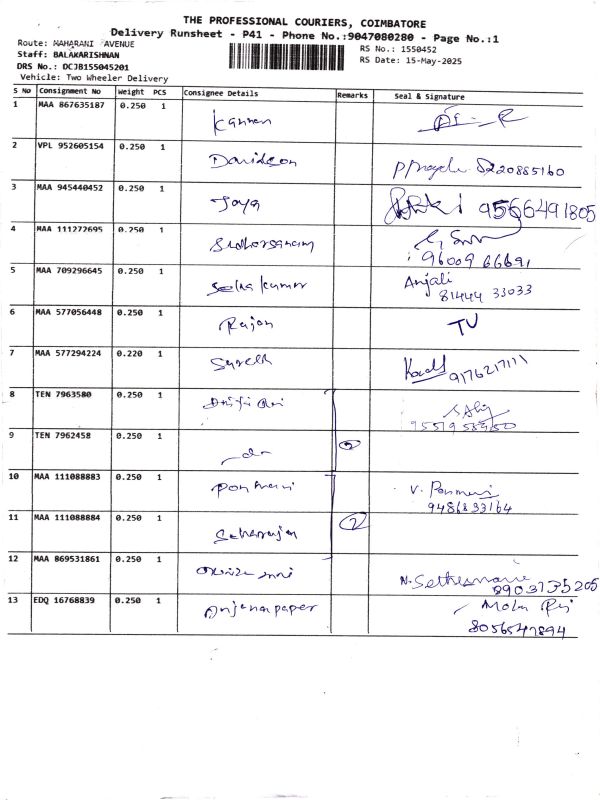 THE PROFESSIONAL COURIERS, COIMBATORE
Delivery Runsheet - P41 - Phone No.:9047080280 - Page No.:1
Route: MAHARANI AVENUE
Staff: BALAKARISHNAN
DRS No.: DCJB155045201
Vehicle: Two Wheeler Delivery
RS No.: 1550452
RS Date: 15-May-2025
S No Consignment No Weight PCS Consignee Details Remarks Seal & Signature
1 MAA 867635187 0.250 1 Kannan
2 VPL 952605154 0.250 1 Davidson 8220885160
3 MAA 945440452 0.250 1 Jaya 9566491805
4 MAA 111272695 0.250 1 Sudharsanam
9600966691
5 MAA 709296645 0.250 1 Selva kumar Anjali
81444 33033
6 MAA 577056448 0.250 1 Rajan TU
7 MAA 577294224 0.220 1 Suresh 9176217111
8 TEN 7963580 0.250 1
9 TEN 7962458 0.250 1 do
10 MAA 111088883 0.250 1 Ponmani V. Ponmani
9486833164
11 MAA 111088884 0.250 1 2
12 MAA 869531861 0.250 1
8903735205
13 EDQ 16768839 0.250 1 Anjana paper
8056547894